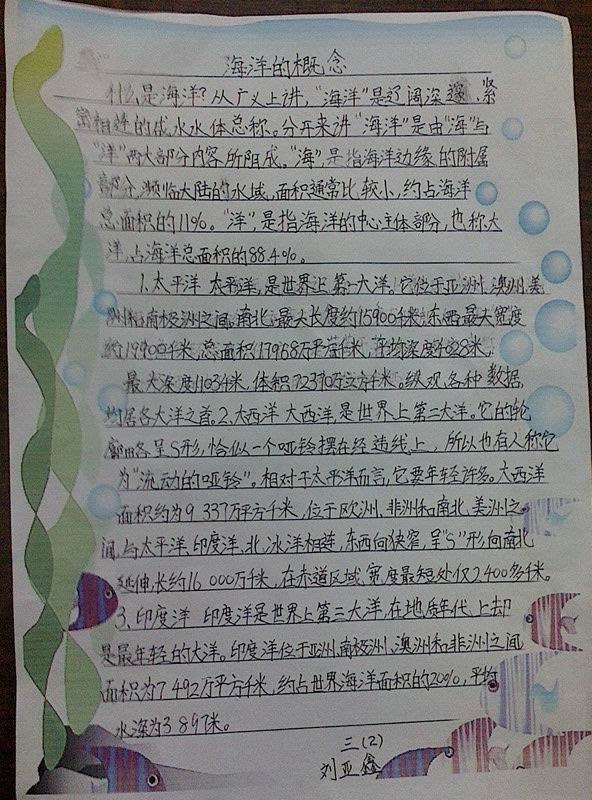 海洋的概念
什么是海洋?从广义上讲,“海洋”是辽阔深邃、紧
密相连的咸水水体总称。分开来讲“海洋”是由“海”与
“洋”两大部分内容所阻成。“海”是指海洋边缘的附属
部分,濒临大陆的水域,面积通常比较小,约占海洋
总面积的11%。“洋”,是指海洋的中心主体部分,也称大
洋,占海洋总面积的88.4%。
1.太平洋 太平洋,是世界上第一大洋。它位于亚洲、澳洲、美
洲和南极洲之间。南北最大长度约15900千米,东西最大宽度
约19900千米,总面积17968万平方千米,平均深度4028米,
最大深度11034米,体积72370万立方千米。纵观各种数据,
均居各大洋之首。2、大西洋 大西洋,是世界上第二大洋。它的轮
廓由各呈S形,恰似一个哑铃摆在经纬线上,所以也有人称它
为“流动的哑铃”。相对于太平洋而言,它要年轻许多。大西洋
面积约为9 337万平方千米,位于欧洲、非洲和南北美洲之
间,与太平洋、印度洋、北冰洋相连,东西向狭窄,呈“S”形,向南北
延伸,长约16 000万千米,在赤道区域,宽度最短处仅2400多千米。
3、印度洋 印度洋是世界上第三大洋,在地质年代上却
是最年轻的大洋。印度洋位于亚洲、南极洲、澳洲和非洲之间
面积为7 492万平方千米,约占世界海洋面积的20%,平均
水深为3 897米。
三(2)
刘亚鑫